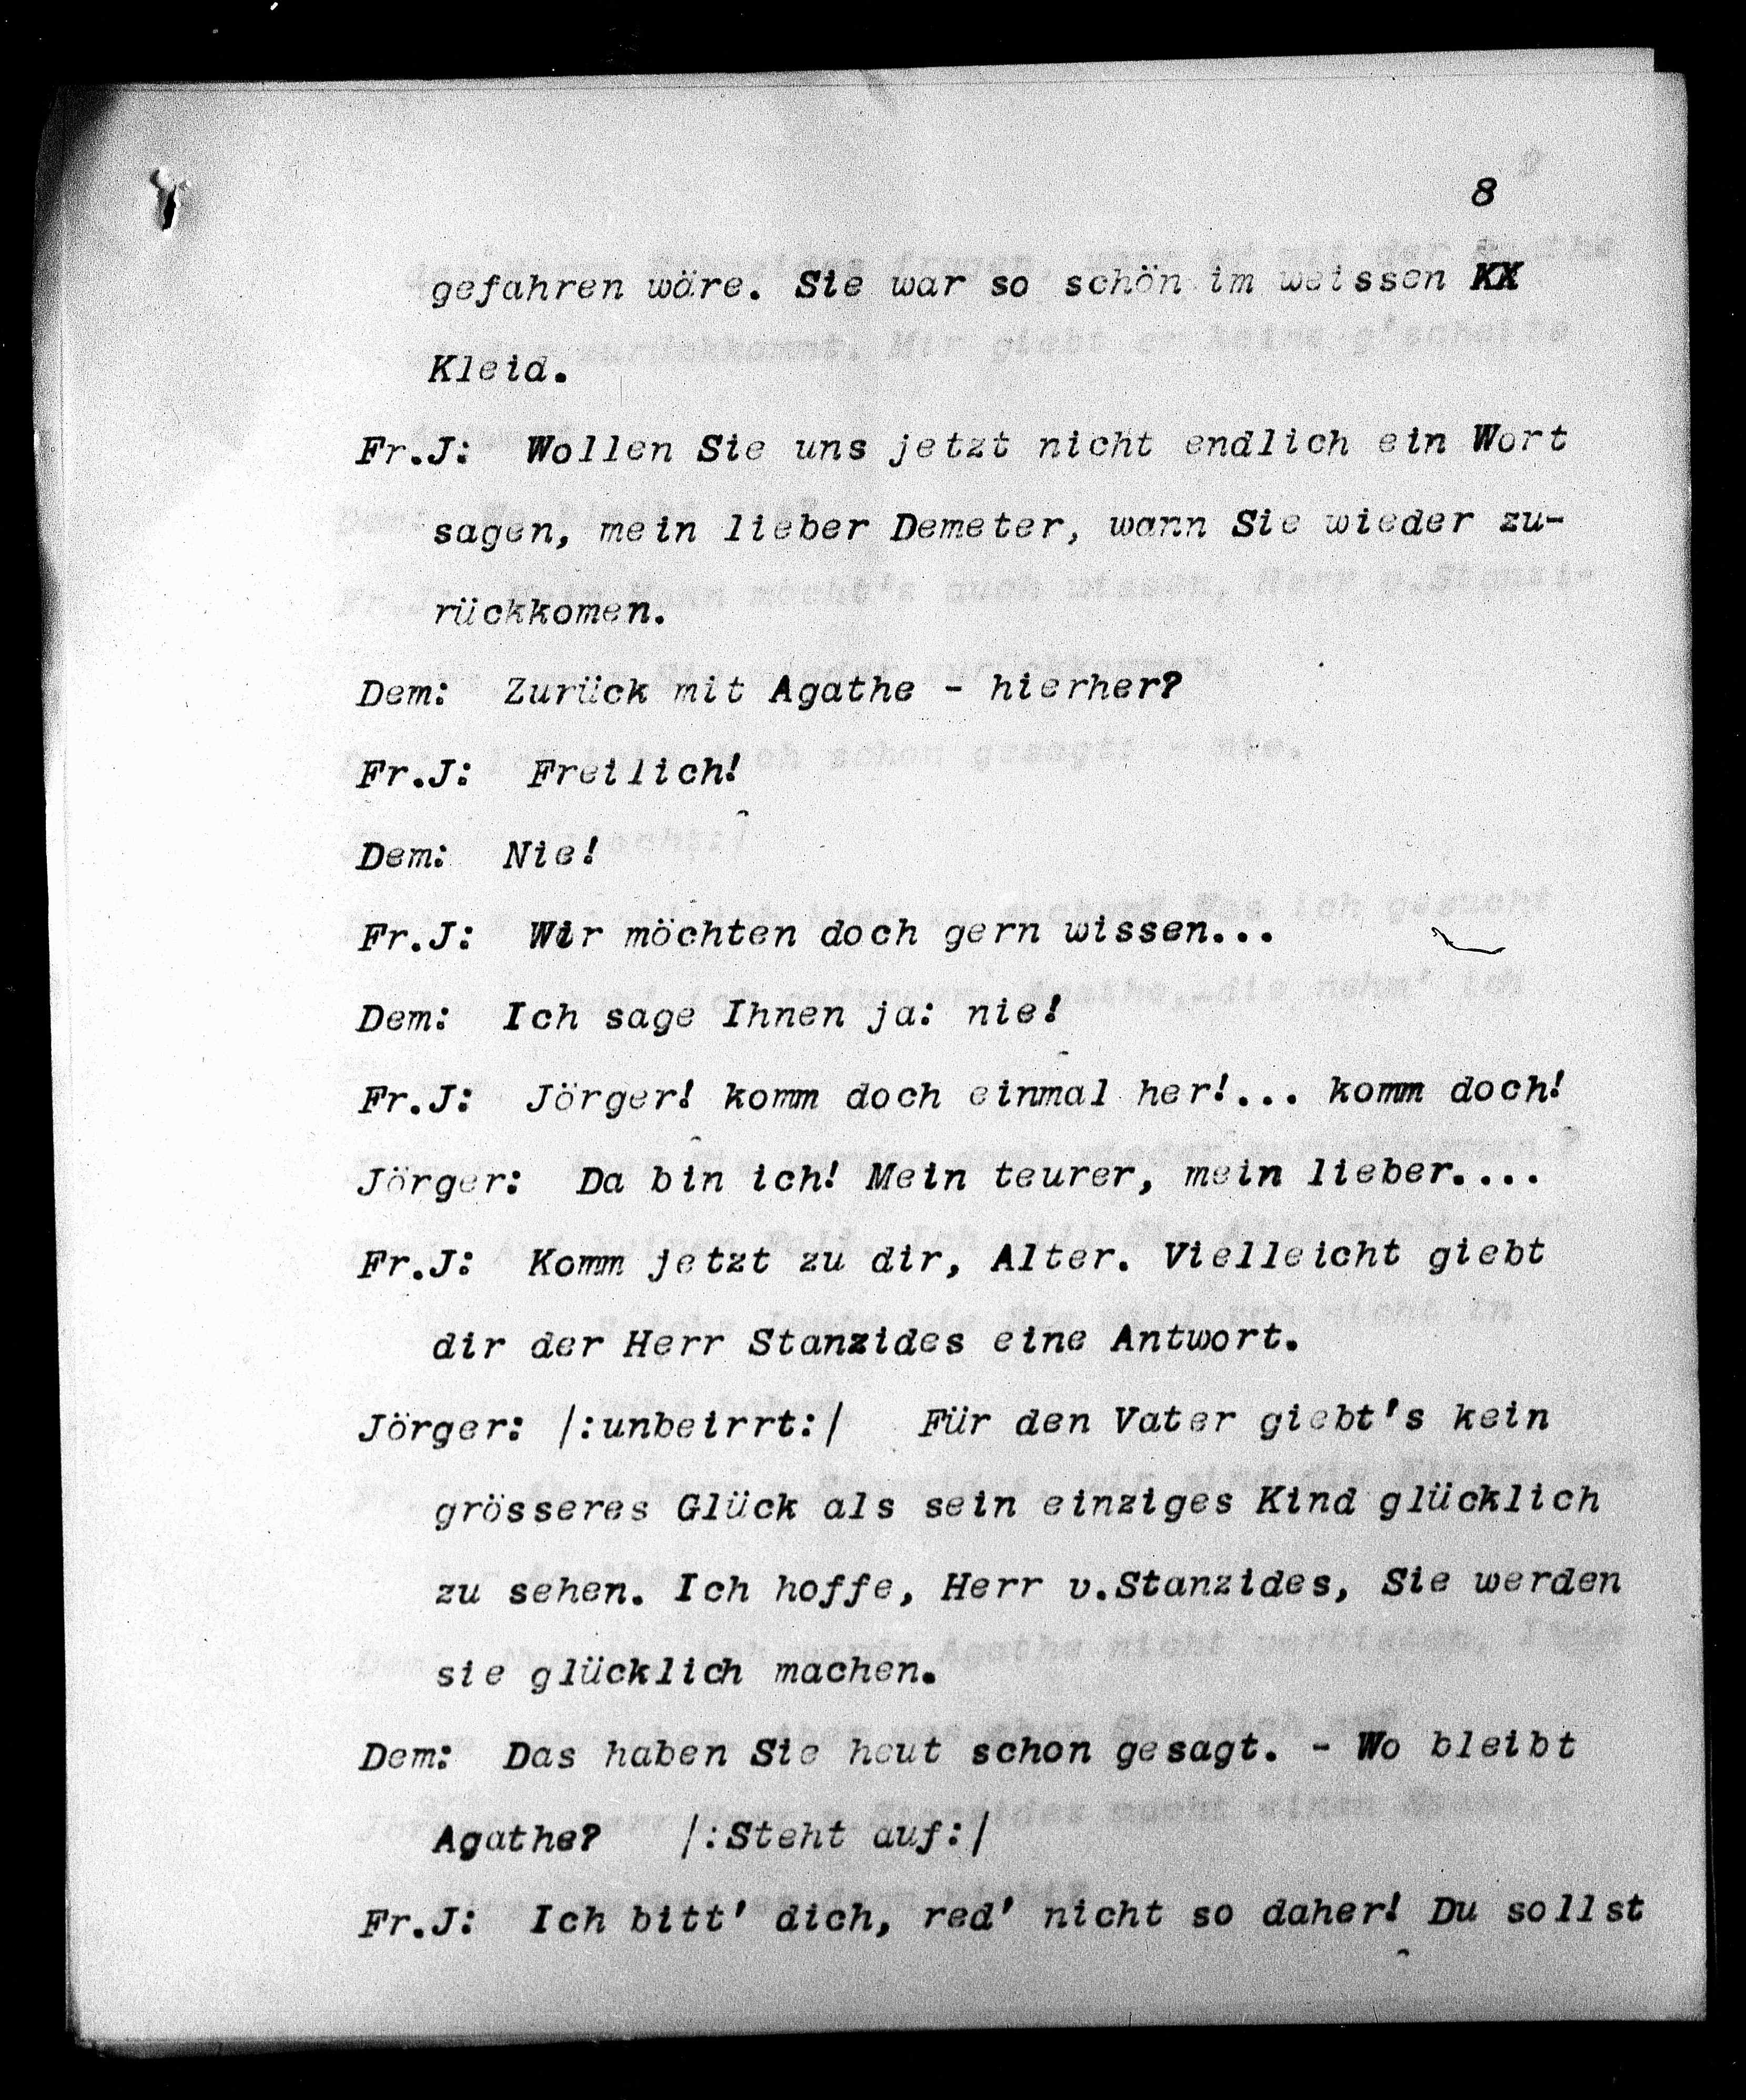 8
gefahren wäre. Sie war so schön im weissen KX
Kleid.
Fr.J: Wollen Sie uns jetzt nicht endlich ein Wort
sagen, mein lieber Demeter, wann Sie wieder zu-
rückkomen.
Dem: Zurück mit Agathe - hierher?
Fr.J: Freilich!
Dem: Nie!
Fr.J: Wir möchten doch gern wissen...
Dem: Ich sage Ihnen ja: nie!
Fr.J: Jörger! komm doch einmal her!... komm doch!
Jörger: Da bin ich! Mein teurer, mein lieber....
Fr.J: Komm jetzt zu dir, Alter. Vielleicht giebt
dir der Herr Stanzides eine Antwort.
Jörger: /:unbeirrt:/ Für den Vater giebt's kein
grösseres Glück als sein einziges Kind glücklich
zu sehen. Ich hoffe, Herr v.Stanzides, Sie werden
sie glücklich machen.
Dem: Das haben Sie heut schon gesagt. - Wo bleibt
Agathe? /:Steht auf:/
Fr.J: Ich bitt' dich, red' nicht so daher! Du sollst